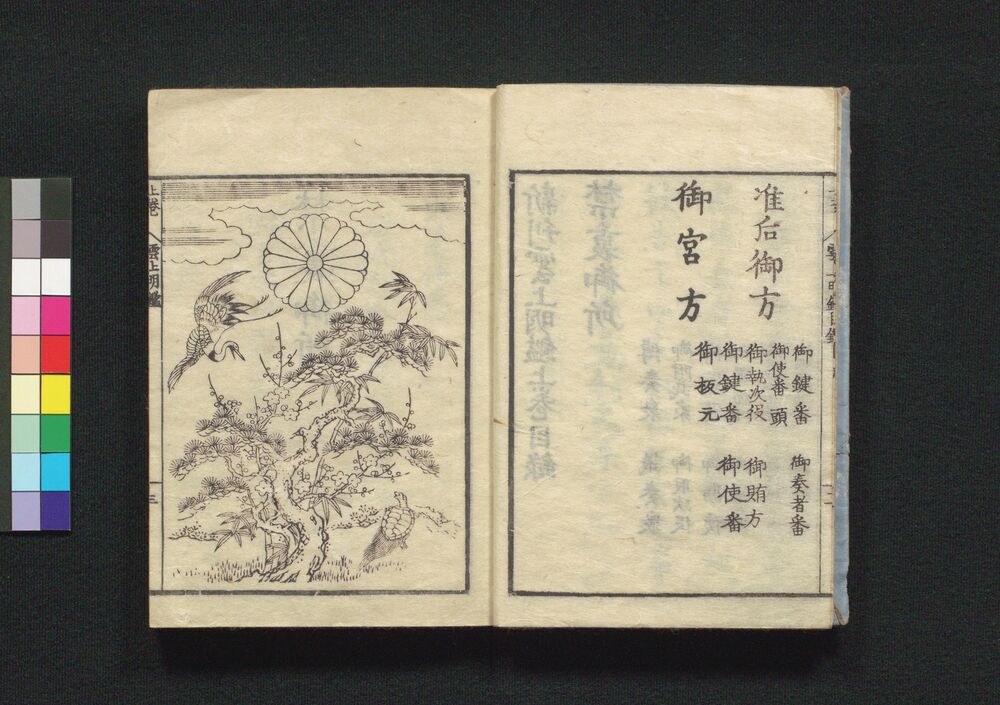 准后御方
御鍵番 御奏者番
御使番頭
御執次役 御賄方
御鍵番 御使番
御板元
御宮方
上巻 雲上明鑑 三